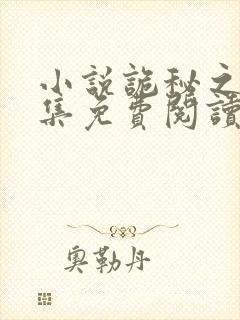 小説詭秘之
集免費閱讀
奧勒丹